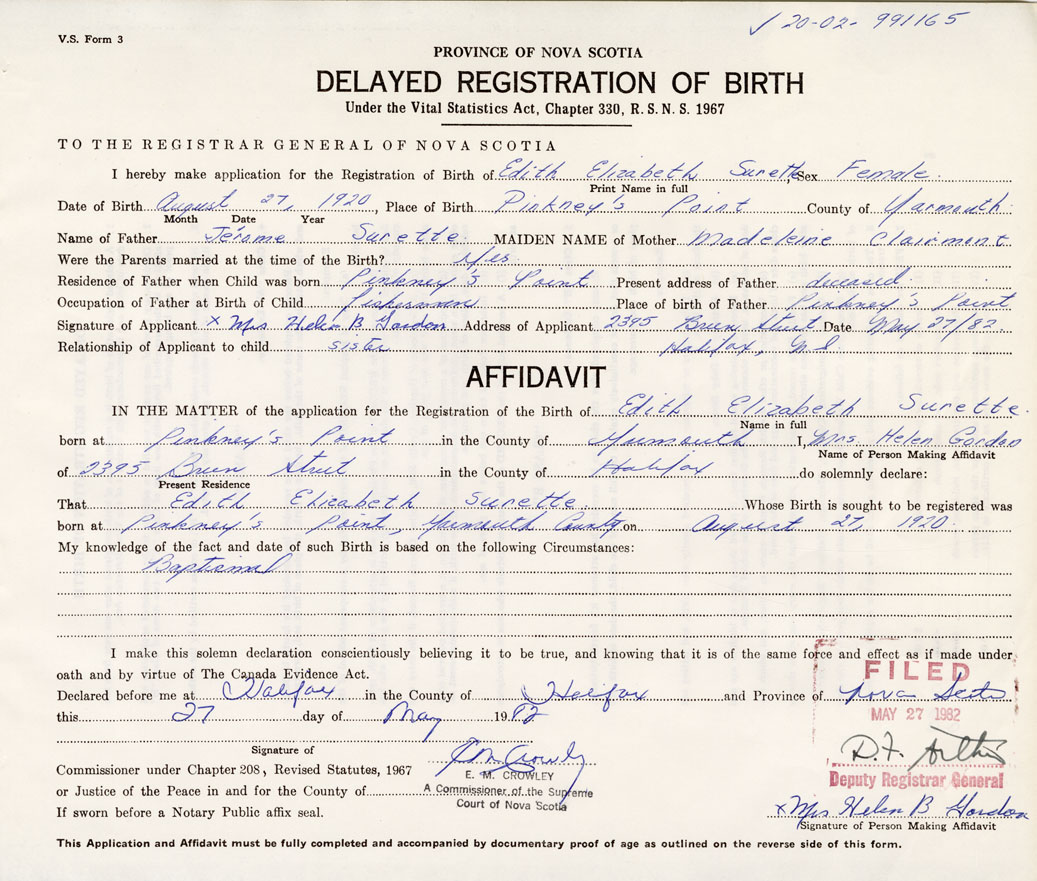 20-02-991165
V.S. Form 3
PROVINCE OF NOVA SCOTIA
DELAYED REGISTRATION OF BIRTH
Under the Vital Statistics Act, Chapter 330, R.S.N.S. 1967
TO THE REGISTRAR GENERAL OF NOVA SCOTIA
I hereby make application for the Registration of Birth of Edith Elizabeth Surette, Sex Female
Print Name in full
Date of Birth August 27, 1920, Place of Birth Pinkney's Point County of Yarmouth
Month Date Year
Name of Father Jérome Surette MAIDEN NAME of Mother Madeleine Clairmont
Were the Parents married at the time of the Birth? Yes
Residence of Father when Child was born Pinkney's Point Present address of Father deceased
Occupation of Father at Birth of Child fisherman Place of birth of Father Pinkney's Point
Signature of Applicant x Mrs Helen B Gordon Address of Applicant 2395 Brun Street Date May 27/82
Relationship of Applicant to child sister Halifax, N.S.
AFFIDAVIT
IN THE MATTER of the application for the Registration of the Birth of Edith Elizabeth Surette
Name in full
born at Pinkney's Point in the County of Yarmouth I, Mrs Helen Gordon
Name of Person Making Affidavit
of 2395 Brun Street in the County of Halifax do solemnly declare:
Present Residence
That Edith Elizabeth Surette Whose Birth is sought to be registered was
born at Pinkney's Point, Yarmouth County on August 27, 1920
My knowledge of the fact and date of such Birth is based on the following Circumstances:
Baptismal
I make this solemn declaration conscientiously believing it to be true, and knowing that it is of the same force and effect as if made under
oath and by virtue of The Canada Evidence Act.
FILED
Declared before me at Halifax in the County of Halifax and Province of Nova Scotia
this 27 day of May 1982
MAY 27 1982
Signature of
E. M. Crowley
D.F. Arthur
Commissioner under Chapter 208, Revised Statutes, 1967
E. M. CROWLEY
Deputy Registrar General
or Justice of the Peace in and for the County of
A Commissioner of the Supreme
Court of Nova Scotia
x Mrs Helen B Gordon
If sworn before a Notary Public affix seal.
Signature of Person Making Affidavit
This Application and Affidavit must be fully completed and accompanied by documentary proof of age as outlined on the reverse side of this form.